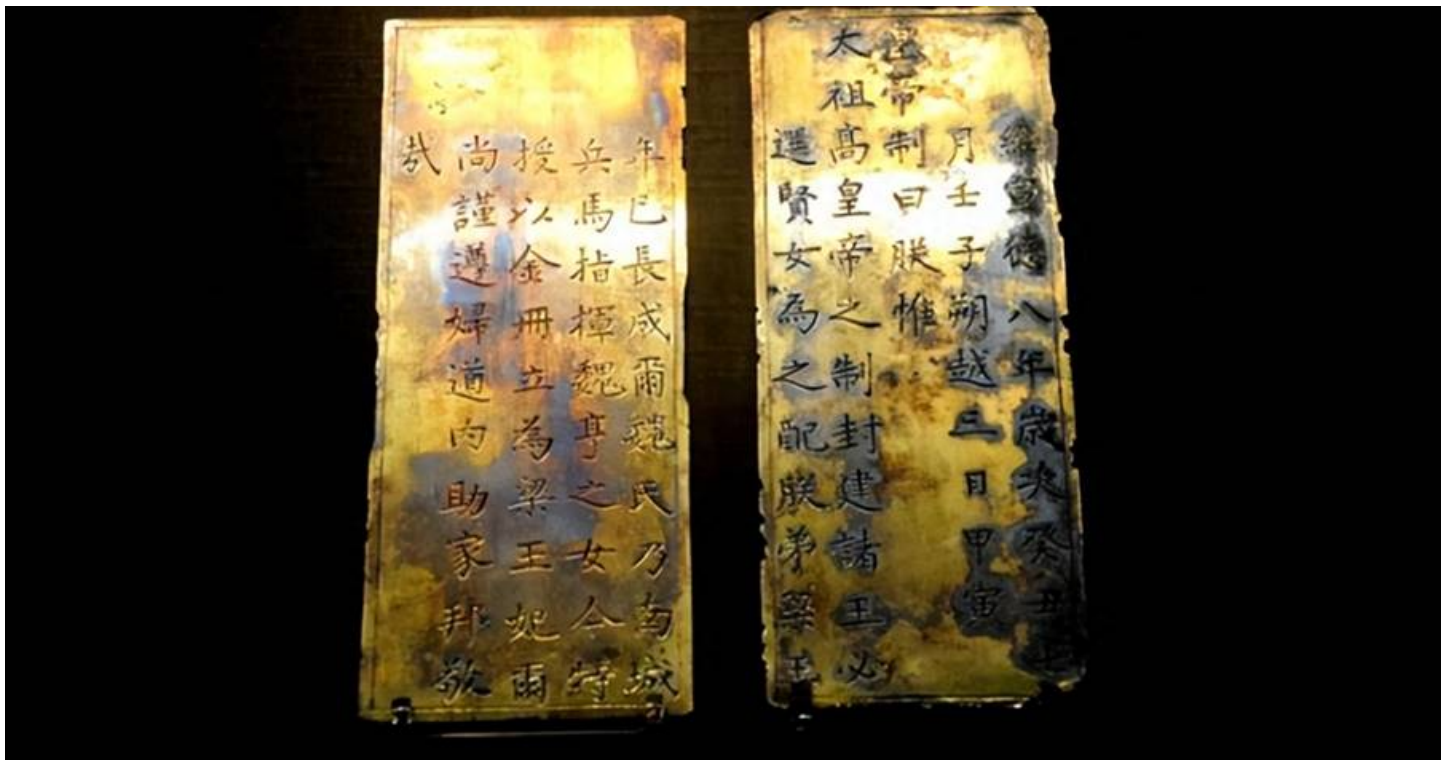 維宣德八年歲次癸丑七
月壬子朔越三日甲寅
皇帝制曰朕惟
太祖高皇帝之制封建諸王必
選賢女為之配朕弟梁王
年已長成爾魏氏乃南城
兵馬指揮魏亨之女今特
授以金冊立為梁王妃爾
尚謹遵婦道內助家邦敬
哉